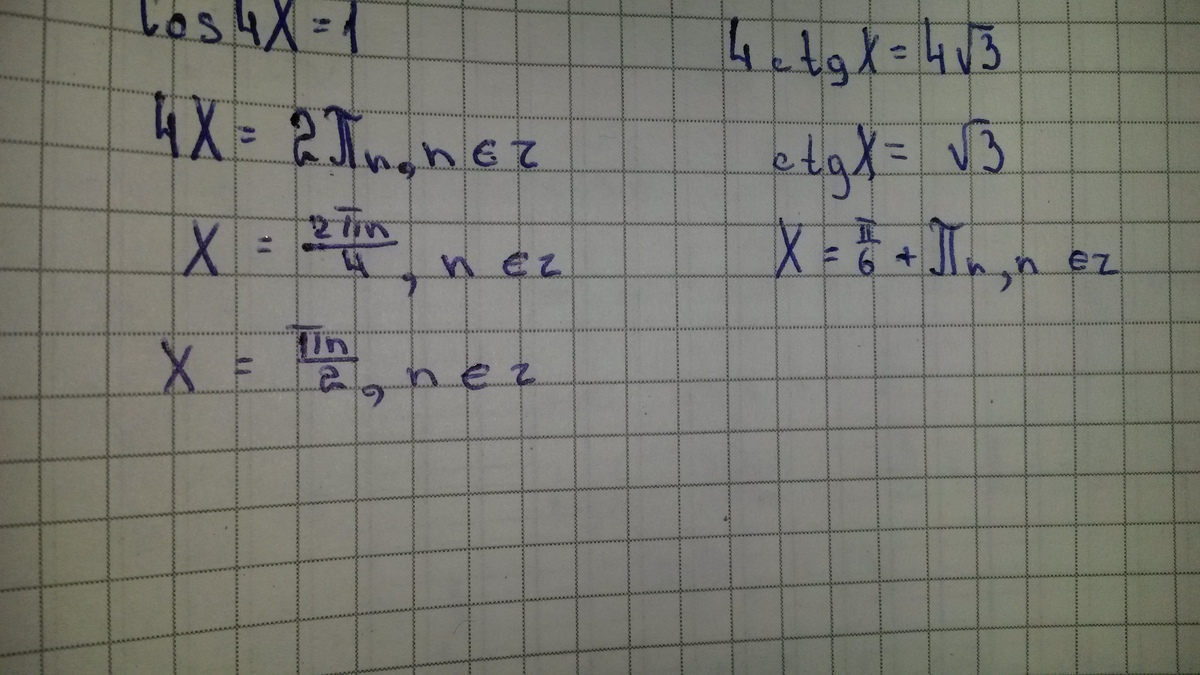 cos4X=1
4X= 2πn, n ∈ z
X = 2πn/4, n ∈ z
X = πn/2, n ∈ z
4 ctgX= 4√3
ctgX= √3
X = π/6 + πn, n ∈ z